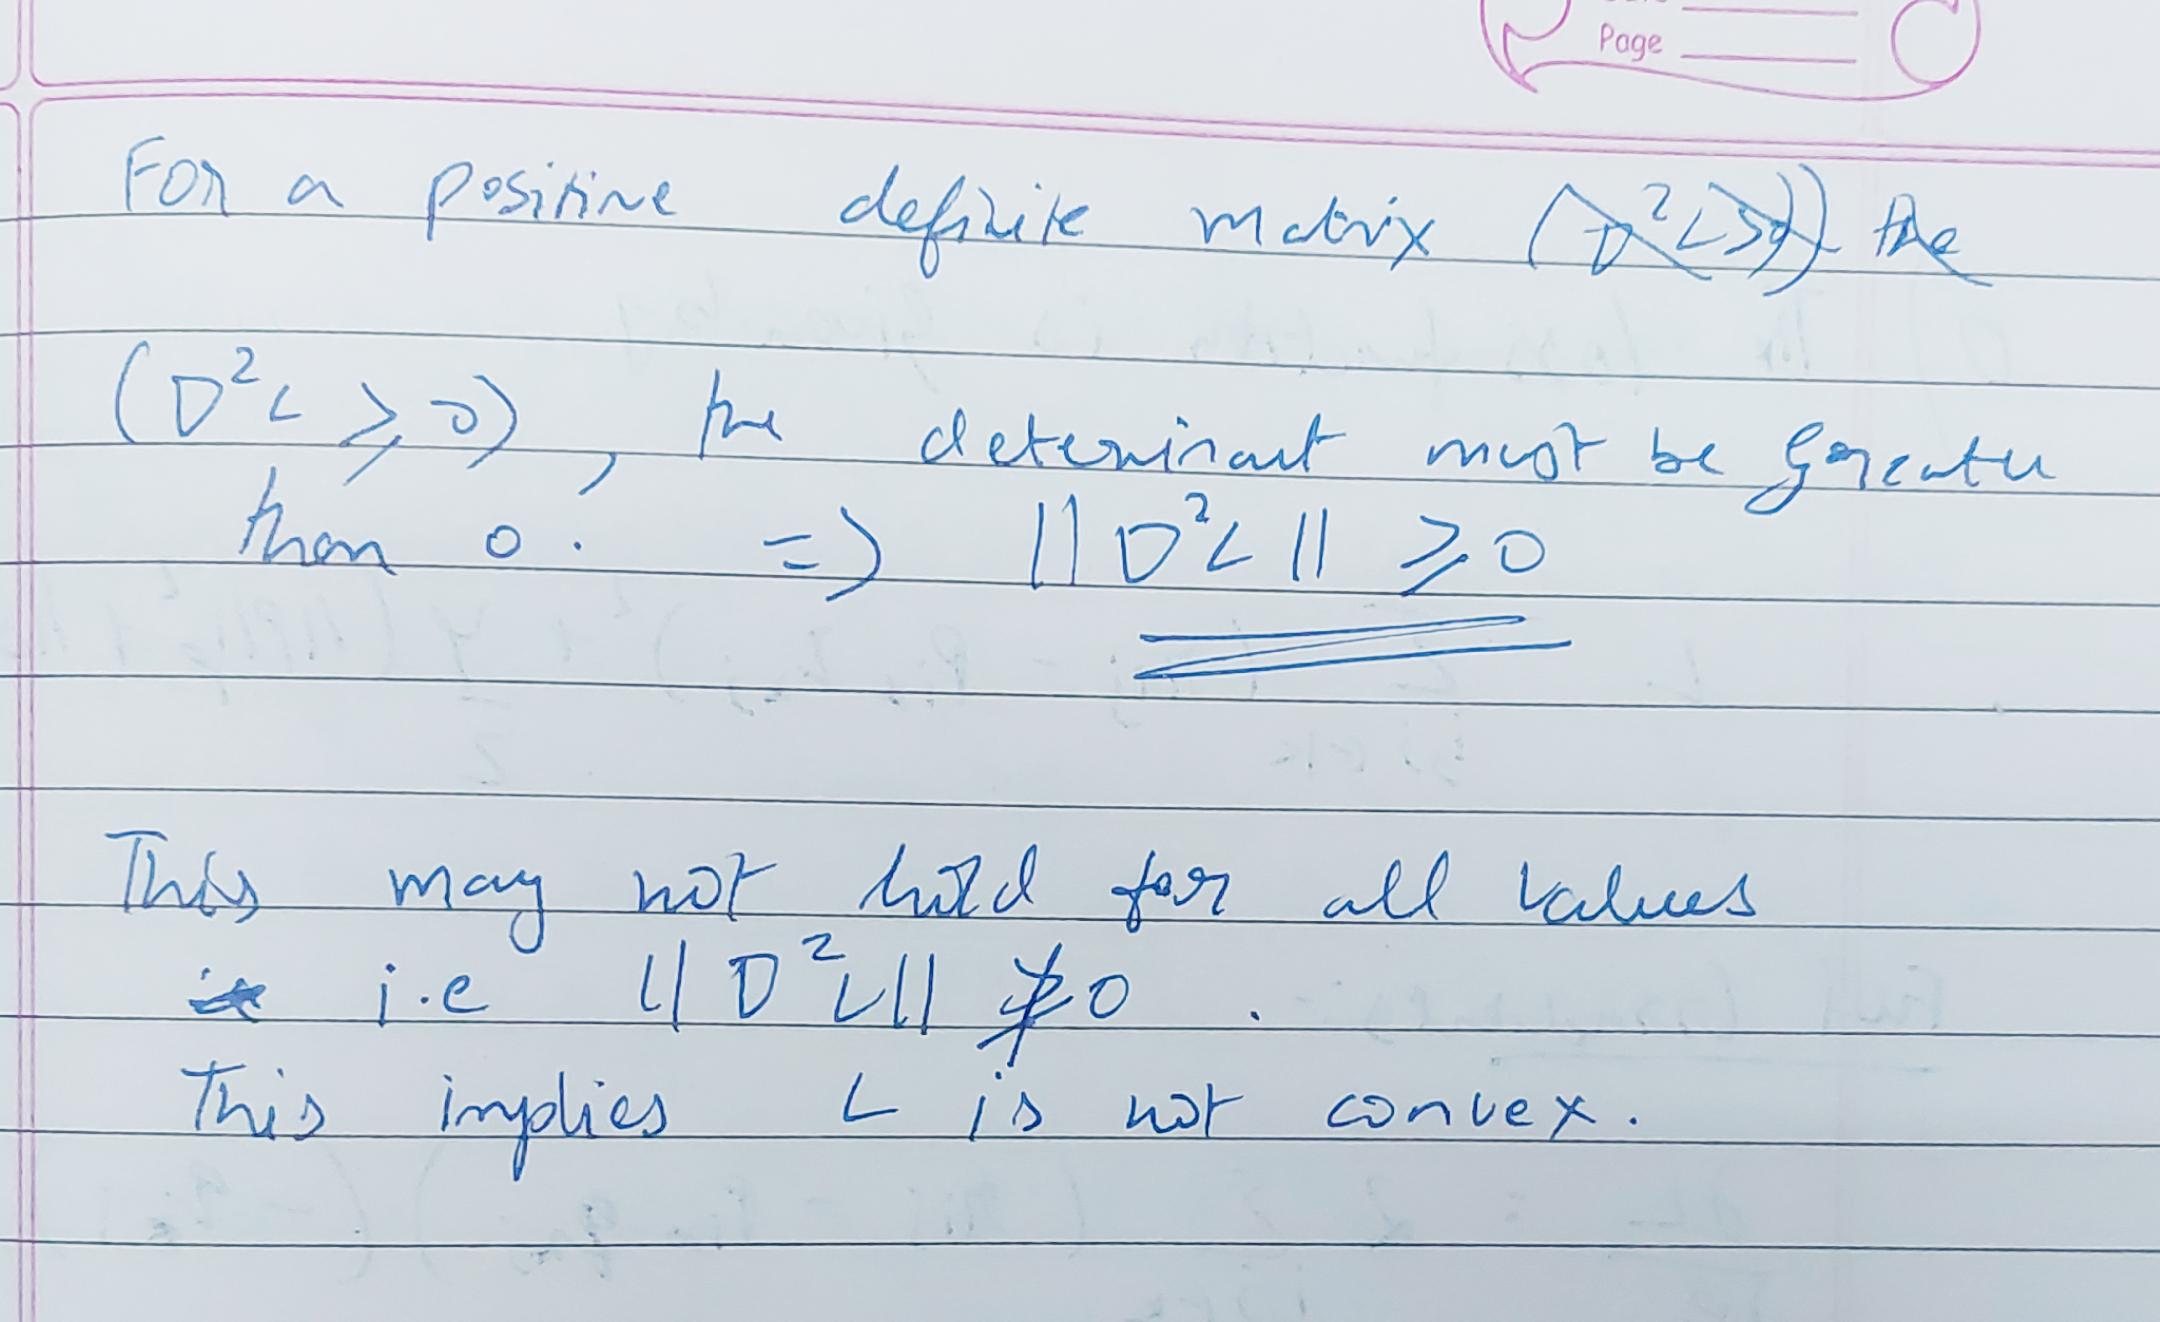 Page
For a positive definite matrix
(D²L ≥ 0), the determinant must be greater
than 0. => ||D²L|| ≥ 0
This may not hold for all values
i.e ||D²L|| ≱ 0.
This implies L is not convex.